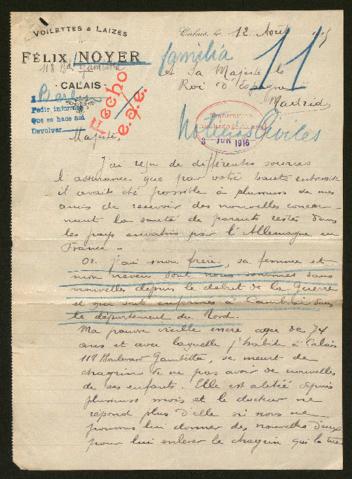 VOILETTES & LAIZES
FÉLIX NOYER
118 Bd Gambetta
CALAIS
Calais, le 12 Août
familia
11
A Sa Majesté le
Roi d'Espagne
Madrid
Pedir informe
Que se haga así
Devolver
Fecho
JUN 1916
Noticias Civiles
Majesté
J'ai reçu de différentes sources
l'assurance que par votre haute entremise
il avait été possible à plusieurs de mes
amis de recevoir des nouvelles concer-
nant la santé de parents restés dans
les pays envahis par l'Allemagne en
France.-
Or, j'ai mon frère, sa femme et
mon neveu dont nous sommes sans
nouvelles depuis le début de la Guerre
et qui sont enfermés à Cambrai dans
le département du Nord.
Ma pauvre vieille mère âgée de 74
ans et avec laquelle j'habite à Calais
118 Boulevard Gambetta, se meurt de
chagrin de ne pas avoir de nouvelles
de ses enfants. Elle est alitée depuis
plusieurs mois et le docteur ne
répond plus d'elle si nous ne
pouvons lui donner des nouvelles d'eux
pour lui enlever le chagrin qui la tue